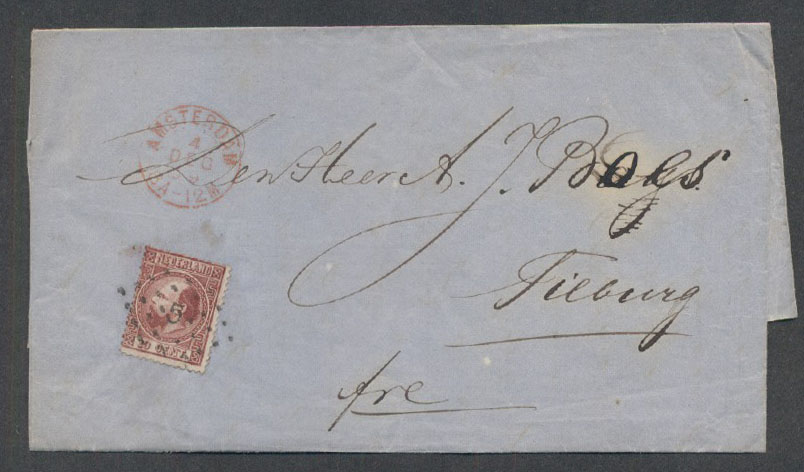 AMSTERDAM
4
DEC
-12M
Den Heer A. J. Bogs.
Tilburg
fre
NEDERLAND
5
10 CENT